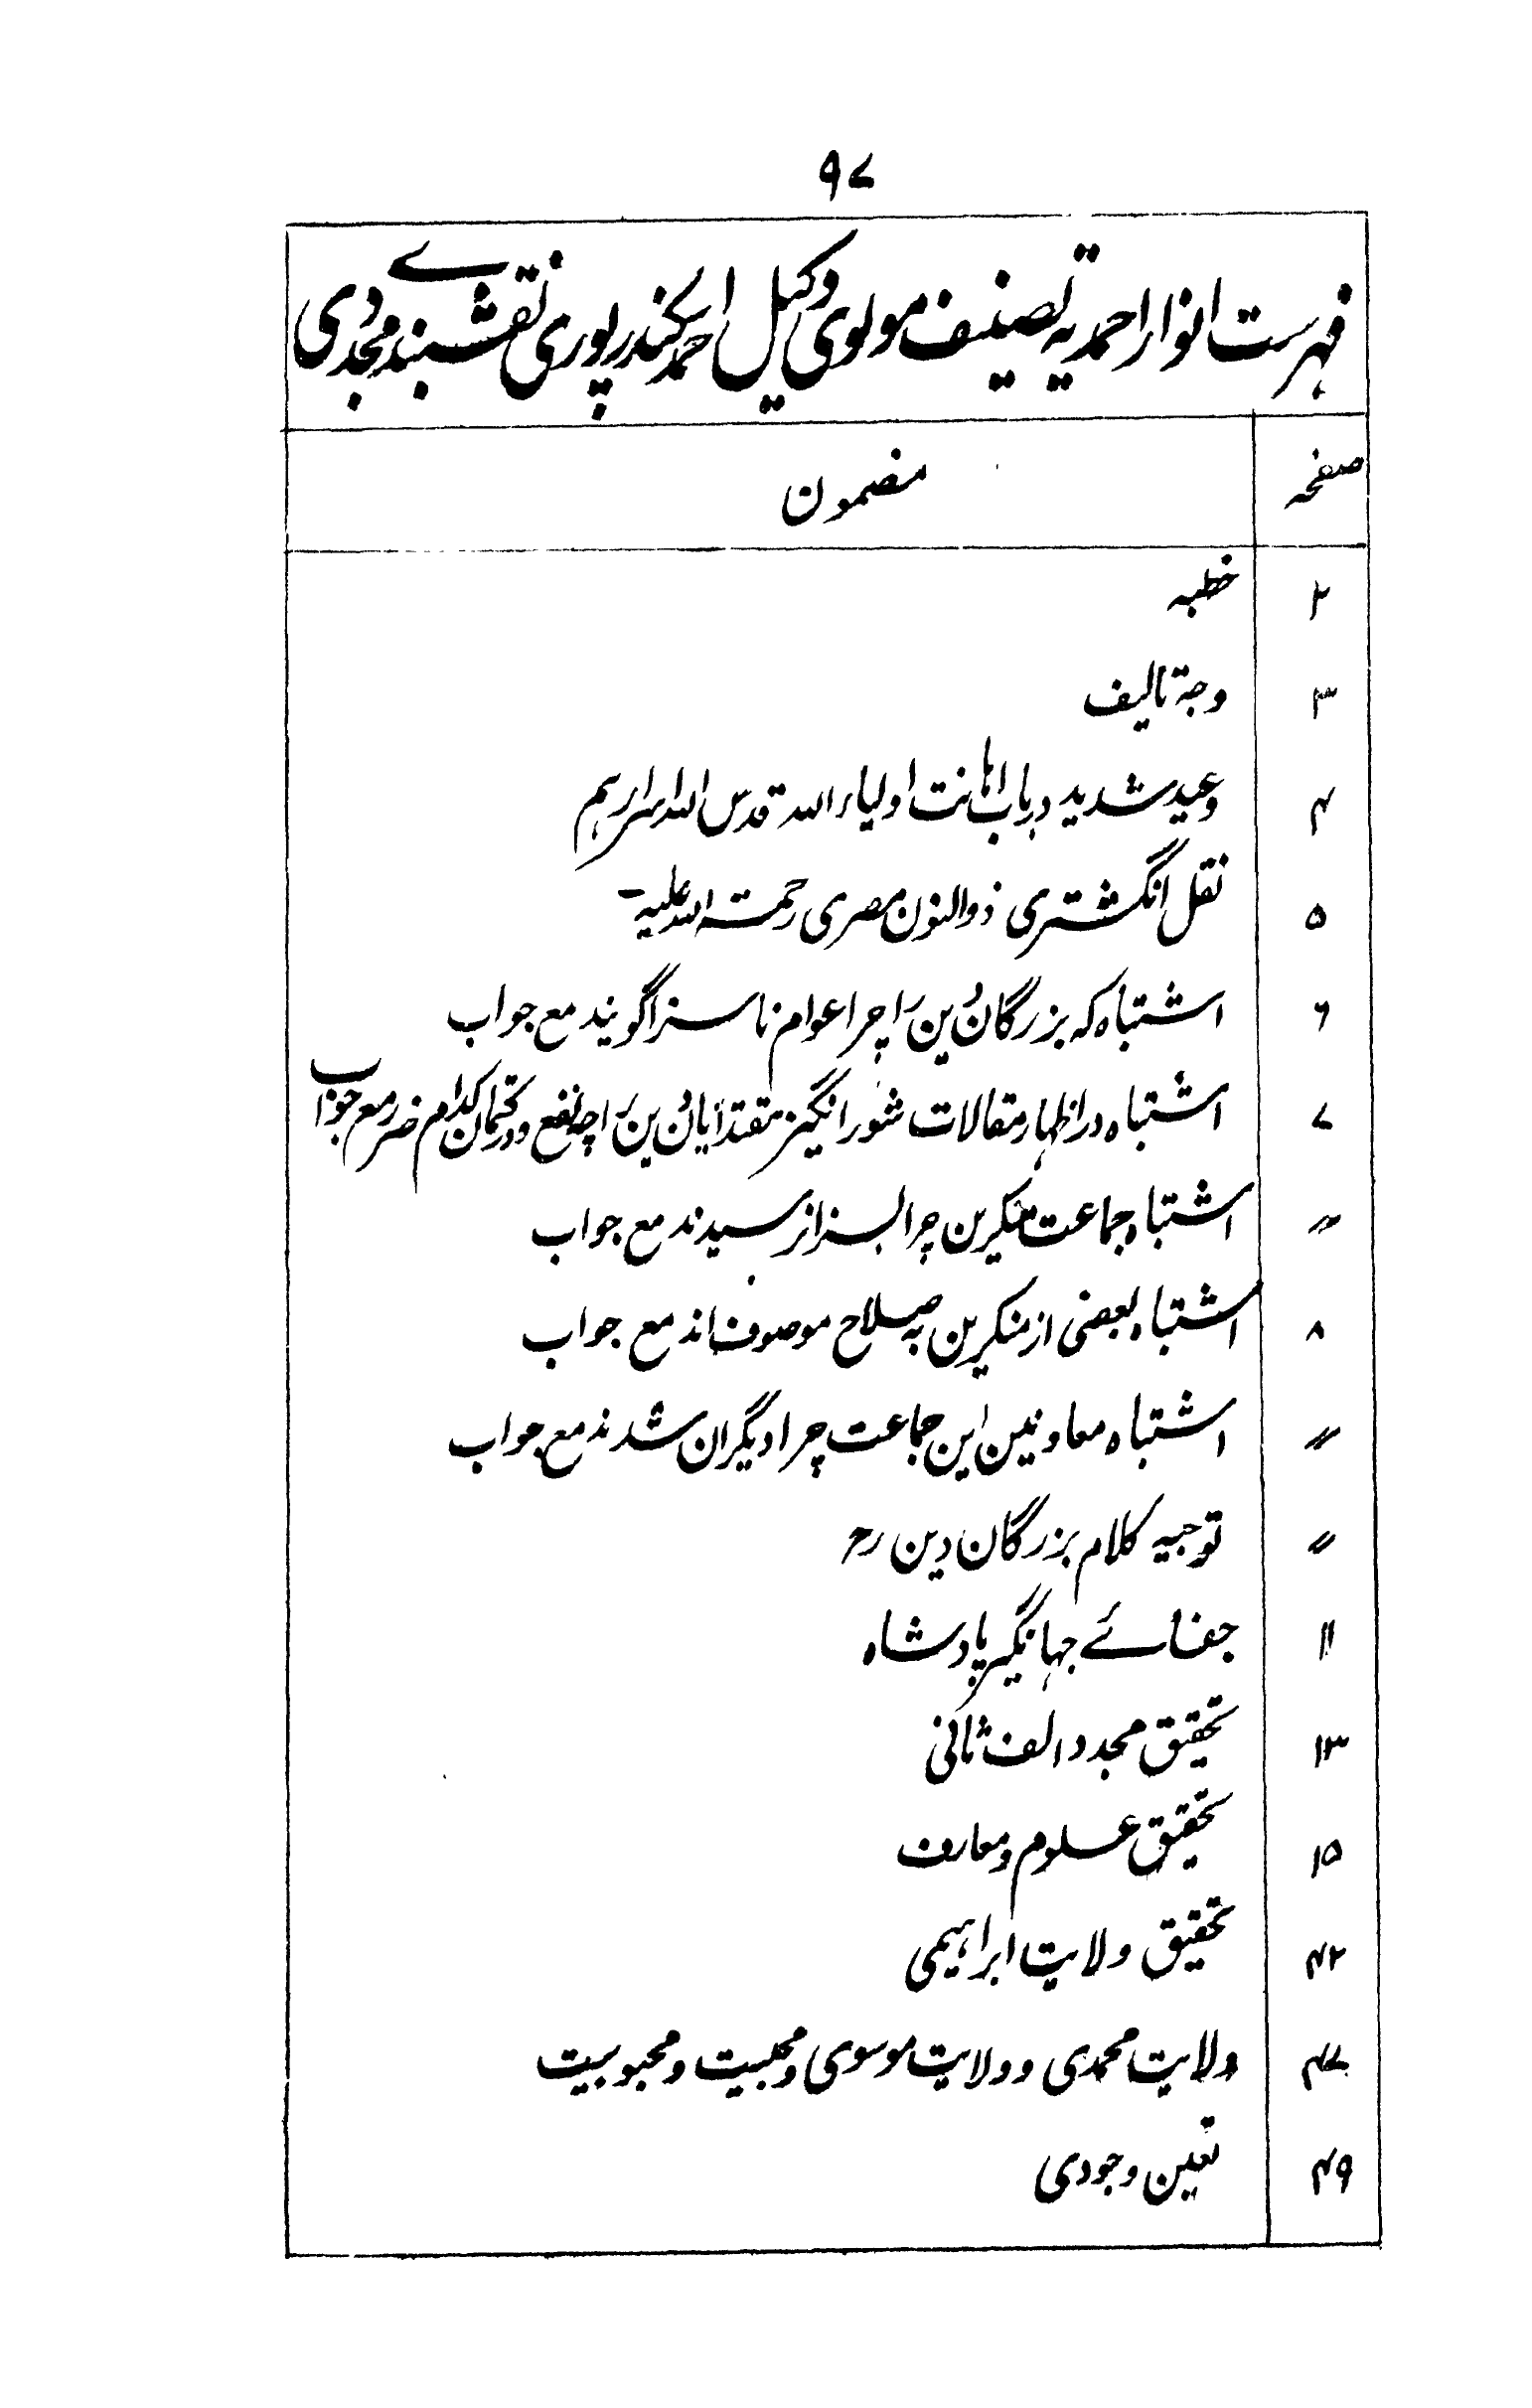 ۹۷
فہرست انوار احمدیہ تصنیف مولوی وکیل احمد سکندرپوری نقشبندے مجددی
صفحہ مضمون
۲ خطبہ
۳ وجۃ تالیف
۴ وعید شدید در باب اہانت اولیاء اللہ قدس اللہ اسرارہم
۵ نقل انگشتری ذوالنون مصری رحمتہ اللہ علیہ
۶ اشتباہ کہ بزرگان دین را چرا عوام ناسزا گویند مع جواب
۷ اشتباہ در اظہار مقالات شور انگیز مقتدایان دین را چہ نفع و در کتمان کدام ضرر مع جواب
〃 اشتباہ جماعت منکرین چرا بسزا نرسیدند مع جواب
۸ اشتباہ بعضی از منکرین بہ صلاح موصوف اند مع جواب
〃 اشتباہ معاونین این جماعت چرا دیگران شدند مع جواب
〃 توجیہ کلام بزرگان دین رح
۱۱ جفائے جہانگیر پادشاہ
۱۳ تحقیق مجدد الف ثانی
۱۵ تحقیق علوم و معارف
۴۲ تحقیق ولایت ابراہیمی
۴۷ ولایت محمدی و ولایت موسوی و محبیت و محبوبیت
۴۹ تعین وجودی